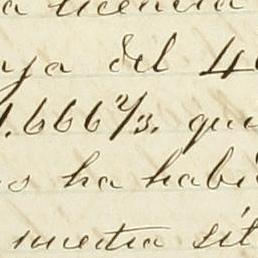 a licencia
ya del 4
1.666 2/3. que
os ha habi
muestra sit